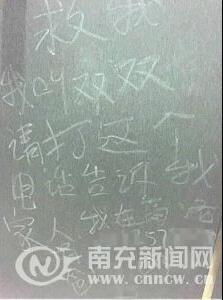 救我
我叫双双
请打这个
电话告诉我
家人 我在南
南充新闻网
www.cnncw.cn